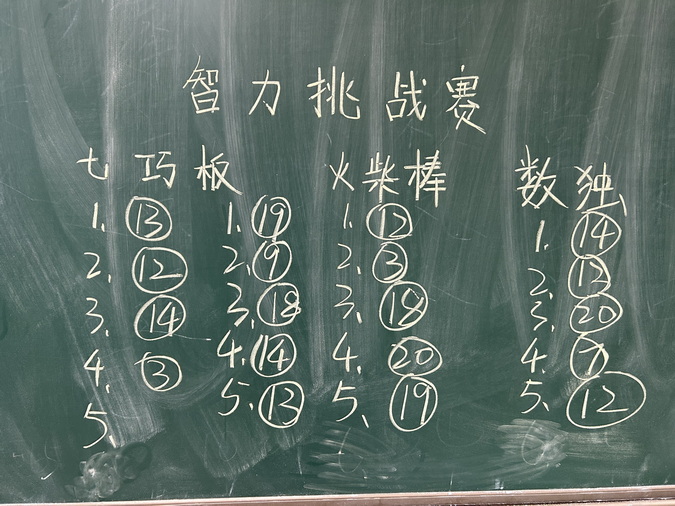 智力挑战赛
七巧板 火柴棒 数独
1. ⑬ 1. ⑲ 1. ⑫ 1. ⑭
2. ⑫ 2. ⑨ 2. ③ 2. ⑬
3. ⑭ 3. ⑱ 3. ⑱ 3. ⑳
4. ③ 4. ⑭ 4. ⑳ 4.
5. 5. ⑬ 5. ⑲ 5. ⑫